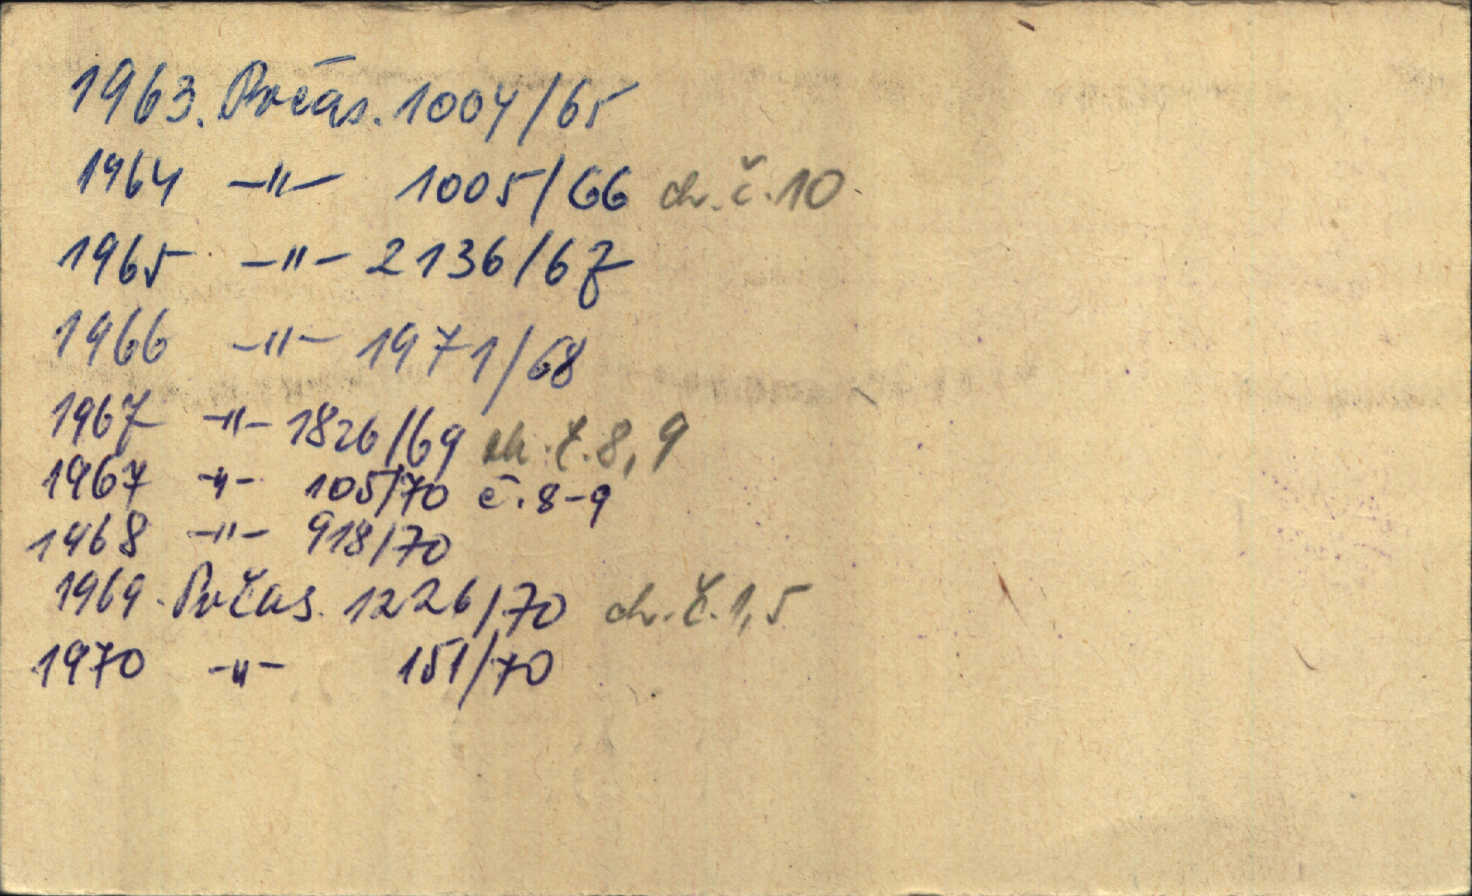 1963. Prčas. 1004/65
1964 -"- 1005/66 ch. č. 10
1965 -"- 2136/67
1966 -"- 1971/68
1967 -"- 1826/69 ch. č. 8, 9
1967 -"- 105/70 č. 8-9
1968 -"- 918/70
1969. Prčas. 1226/70 ch. č. 1, 5
1970 -"- 151/70